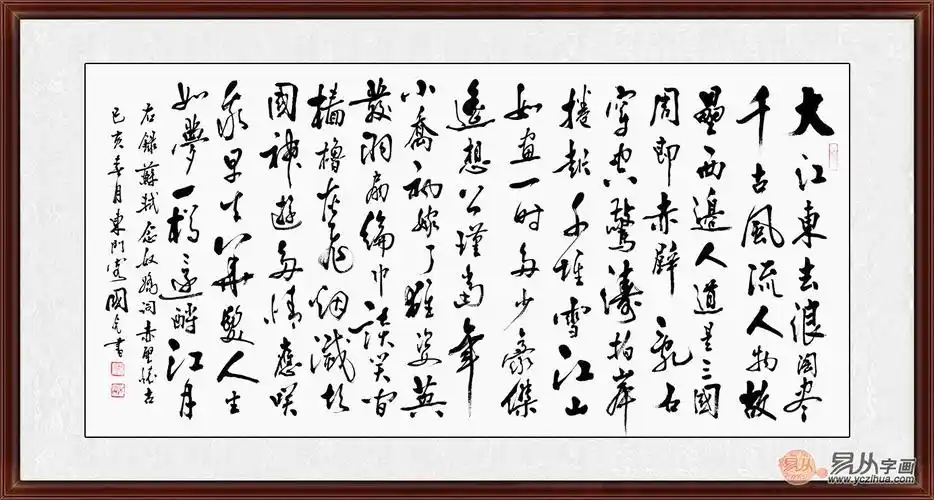 大江東去浪淘盡
千古風流人物故
壘西邊人道是三國
周郎赤壁亂石
穿空驚濤拍岸
捲起千堆雪江山
如畫一時多少豪傑
遙想公瑾當年
小喬初嫁了雄姿英
發羽扇綸巾談笑間
檣櫓灰飛烟滅故
國神遊多情應笑
我早生華髮人生
如夢一樽還酹江月
右錄蘇軾念奴嬌詞赤壁懷古
己亥春月東門國書
易从字画
www.yczihua.com